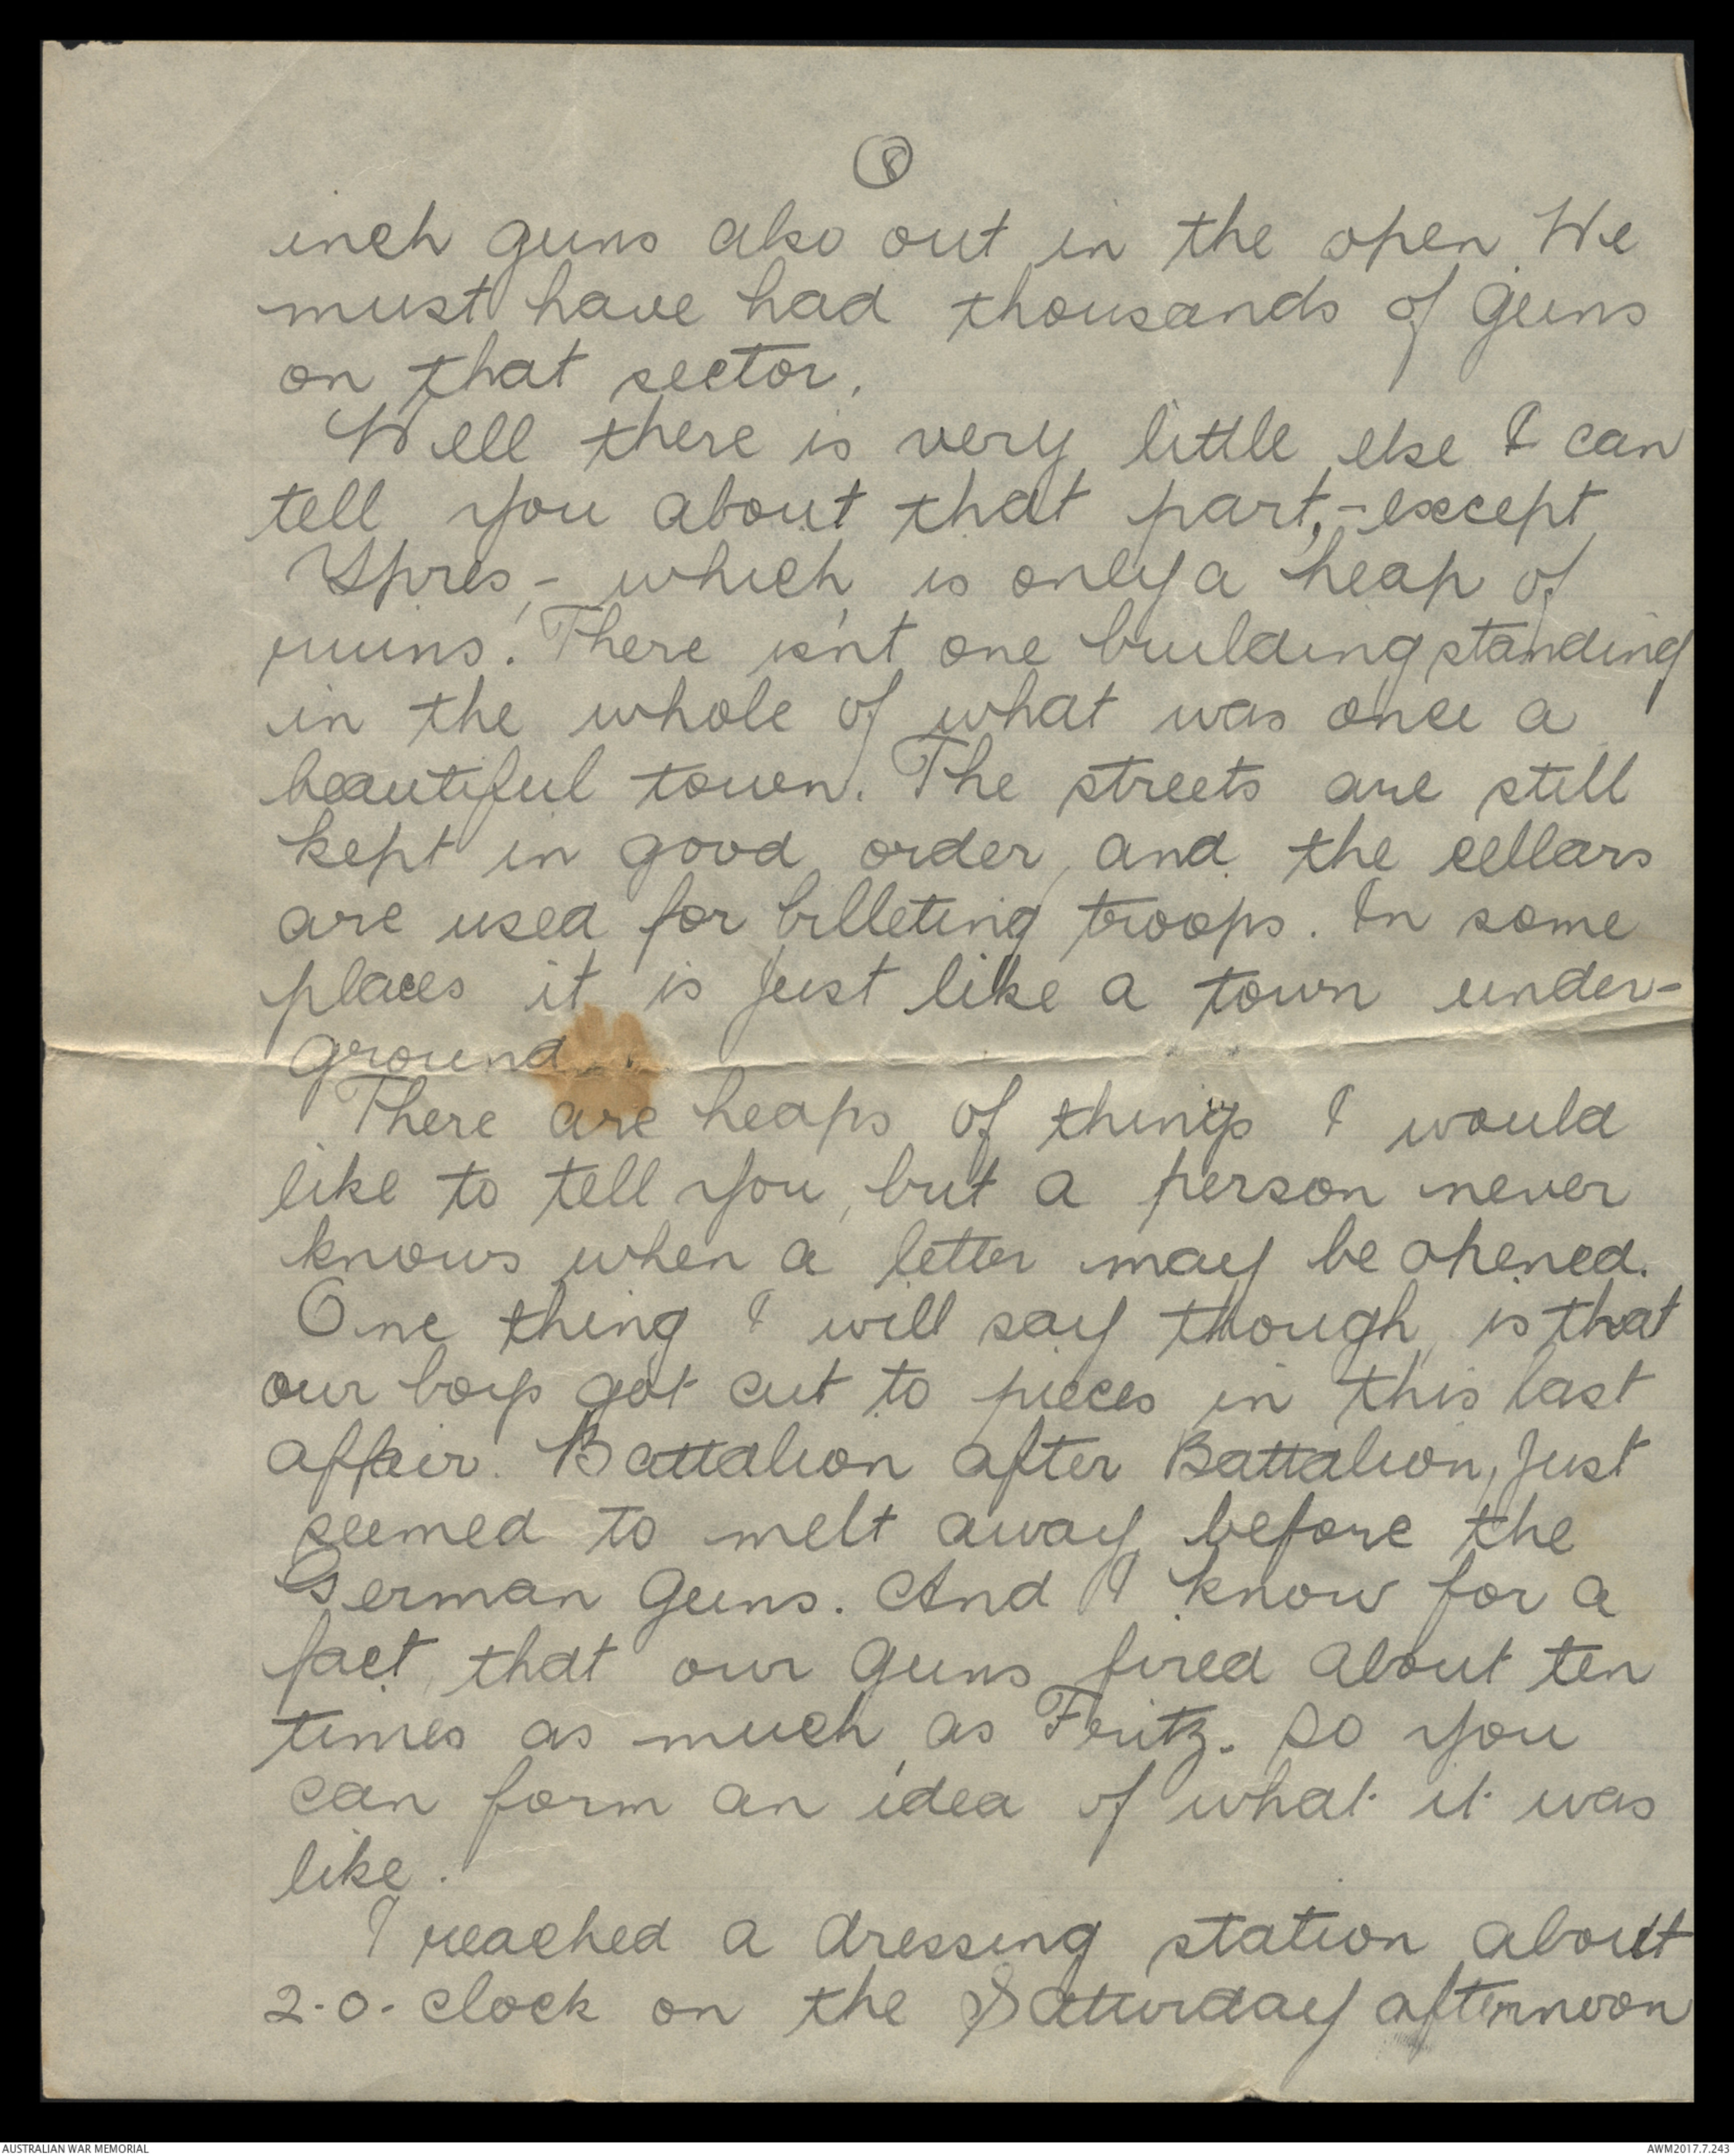 8
inch guns also out in the open. We
must have had thousands of guns
on that sector.
Well there is very little else I can
tell you about that part, - except
Ypres, - which is only a heap of
ruins. There isn't one building standing
in the whole of what was once a
beautiful town. The streets are still
kept in good order, and the cellars
are used for billeting troops. In some
places it is just like a town under-
ground.
There are heaps of things I would
like to tell you, but a person never
knows when a letter may be opened.
One thing I will say though, is that
our boys got cut to pieces in this last
affair. Battalion after Battalion, just
seemed to melt away before the
German guns. And I know for a
fact, that our guns fired about ten
times as much as Fritz. So you
can form an idea of what it was
like.
I reached a dressing station about
2-0-clock on the Satturday afternoon
AUSTRALIAN WAR MEMORIAL
AWM2017.7.243